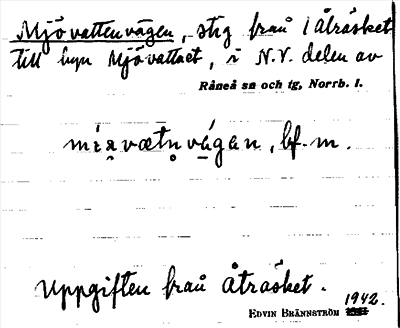 Mjövattenvägen, stig från Åträsket
till byn Mjövattnet, i N.V. delen av
Råneå sn och tg, Norrb. l.
bf. m.
Uppgiften från Åträsket.
1942.
EDVIN BRÄNNSTRÖM